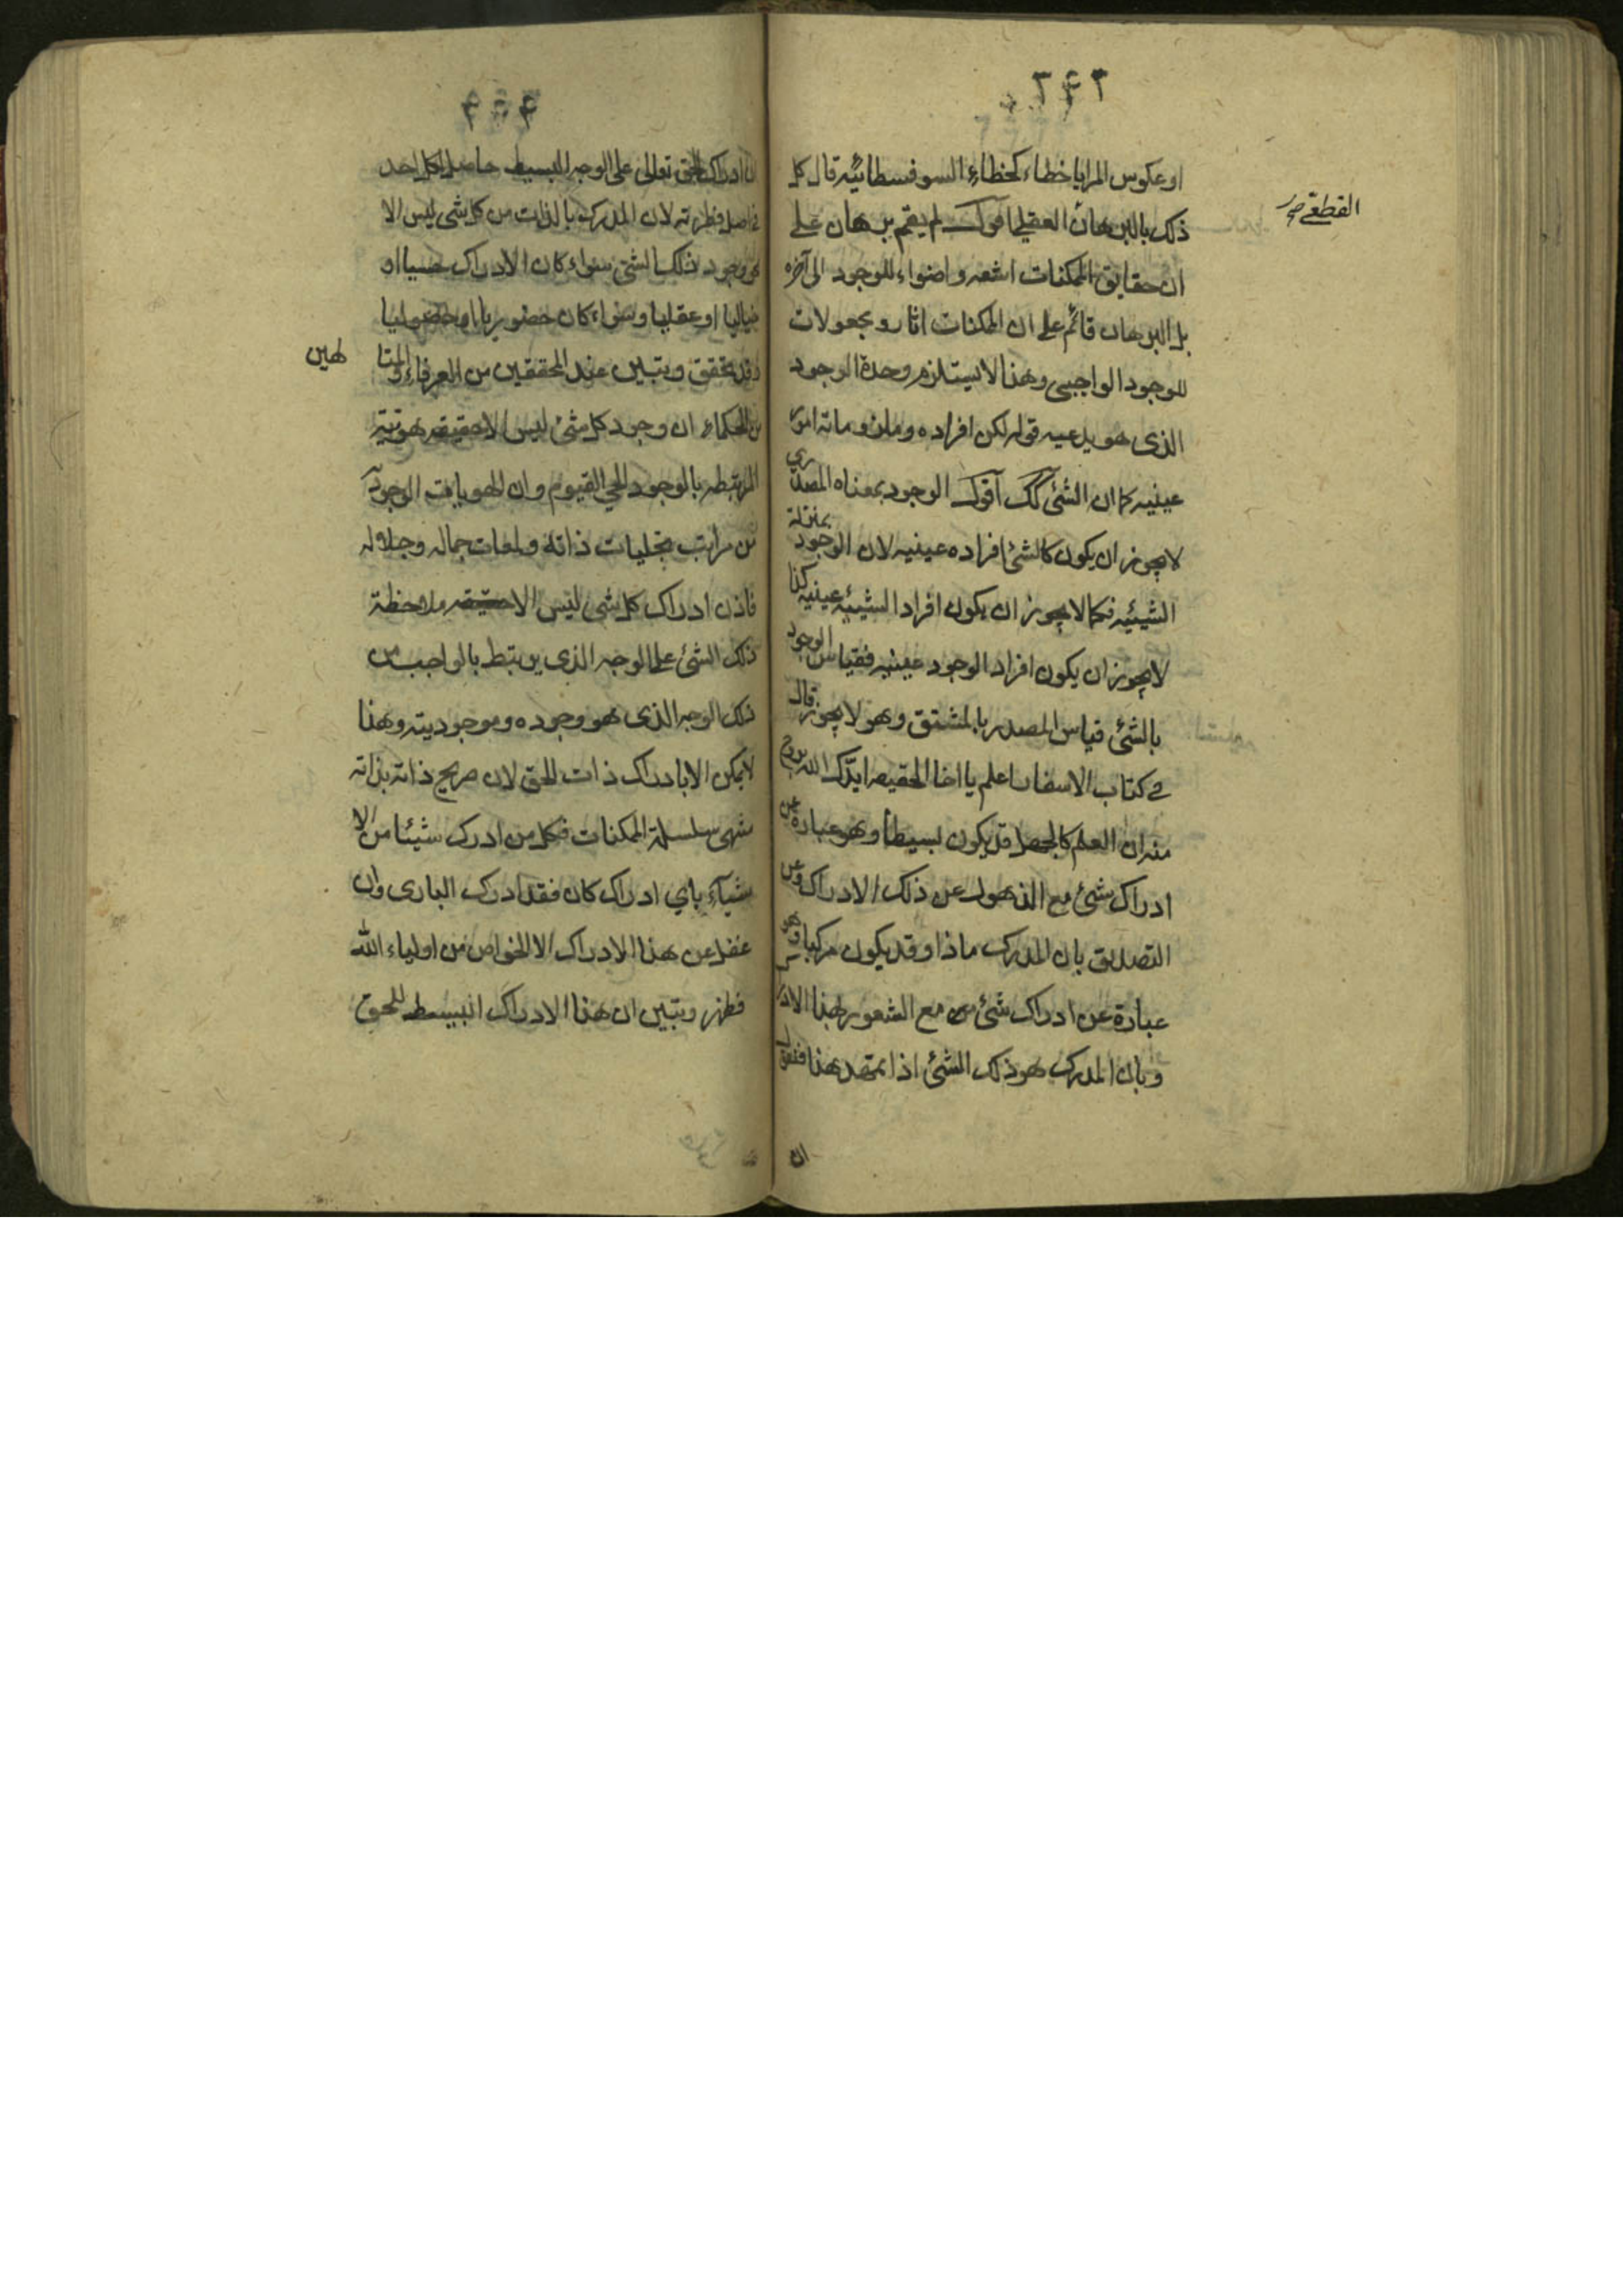 ٢٤٢
او عكوس المرايا خطاء كخطاء السوفسطائيه قال كل
ذلك بالبرهان العقلى اقول لم يقم برهان على
القطعى
ان حقايق الممكنات اشعه و اضواء للوجود الى آخره
بل البرهان قائم على ان الممكنات اثار و مجعولات
للوجود الواجبى و هذا لا يستلزم وحدة الوجود
الذى هو يدعيه قوله لكن افراده و ملزوماته امور
عينيه كما ان الشئ كك اقول الوجود بمعناه المصدرى
لا يجوز ان يكون كالشئ افراده عينيه لان الوجود بمنزلة
الشيئيه فكما لا يجوز ان يكون افراد الشيئيه عينيه كذا
لا يجوز ان يكون افراد الوجود عينيه فقياس الوجود
بالشئ قياس المصدر بالمشتق و هو لا يجوز قال
فى كتاب الاسفار اعلم يا اخا الحقيقه ايدك الله بروح
منه ان العلم كالجهل قد يكون بسيطا و هو عبارة عن
ادراك شئ مع الذهول عن ذلك الادراك و عن
التصديق بان المدرك ماذا و قد يكون مركبا و هو
عبارة عن ادراك شئ مع الشعور بهذا الادراك
و بان المدرك هو ذلك الشئ اذا تمهد هذا فنقول
ان
ان ادراك الحق تعالى على الوجه البسيط حاصل لكل احد
فى اصل فطرته لان المدرك بالذات من كل شى ليس الا
هو وجود ذلك الشئ سواء كان الادراك حسيا او
خياليا او عقليا و سواء كان حضوريا او حصوليا
و قد تحقق و تبين عند المحققين من العرفاء و المتا لهين
من الحكماء ان وجود كل شئ ليس الا حقيقه هويته
المرتبطه بالوجود الحى القيوم و ان الهويات الوجودية
من مراتب تجليات ذاته و لمعات جماله و جلاله
فاذن ادراك كل شى ليس الا ملاحظة
ذلك الشئ على الوجه الذى يرتبط بالواجب من
ذلك الوجه الذى هو وجوده و موجوديته و هذا
لا يمكن الا بادراك ذات الحق لان صريح ذاته بذاته
منتهى سلسلة الممكنات فكل من ادرك شيئا من الا
شياء باي ادراك كان فقد ادرك البارى و ان
غفل عن هذا الادراك الا الخواص من اولياء الله
فظهر و تبين ان هذا الادراك البسيط للحق